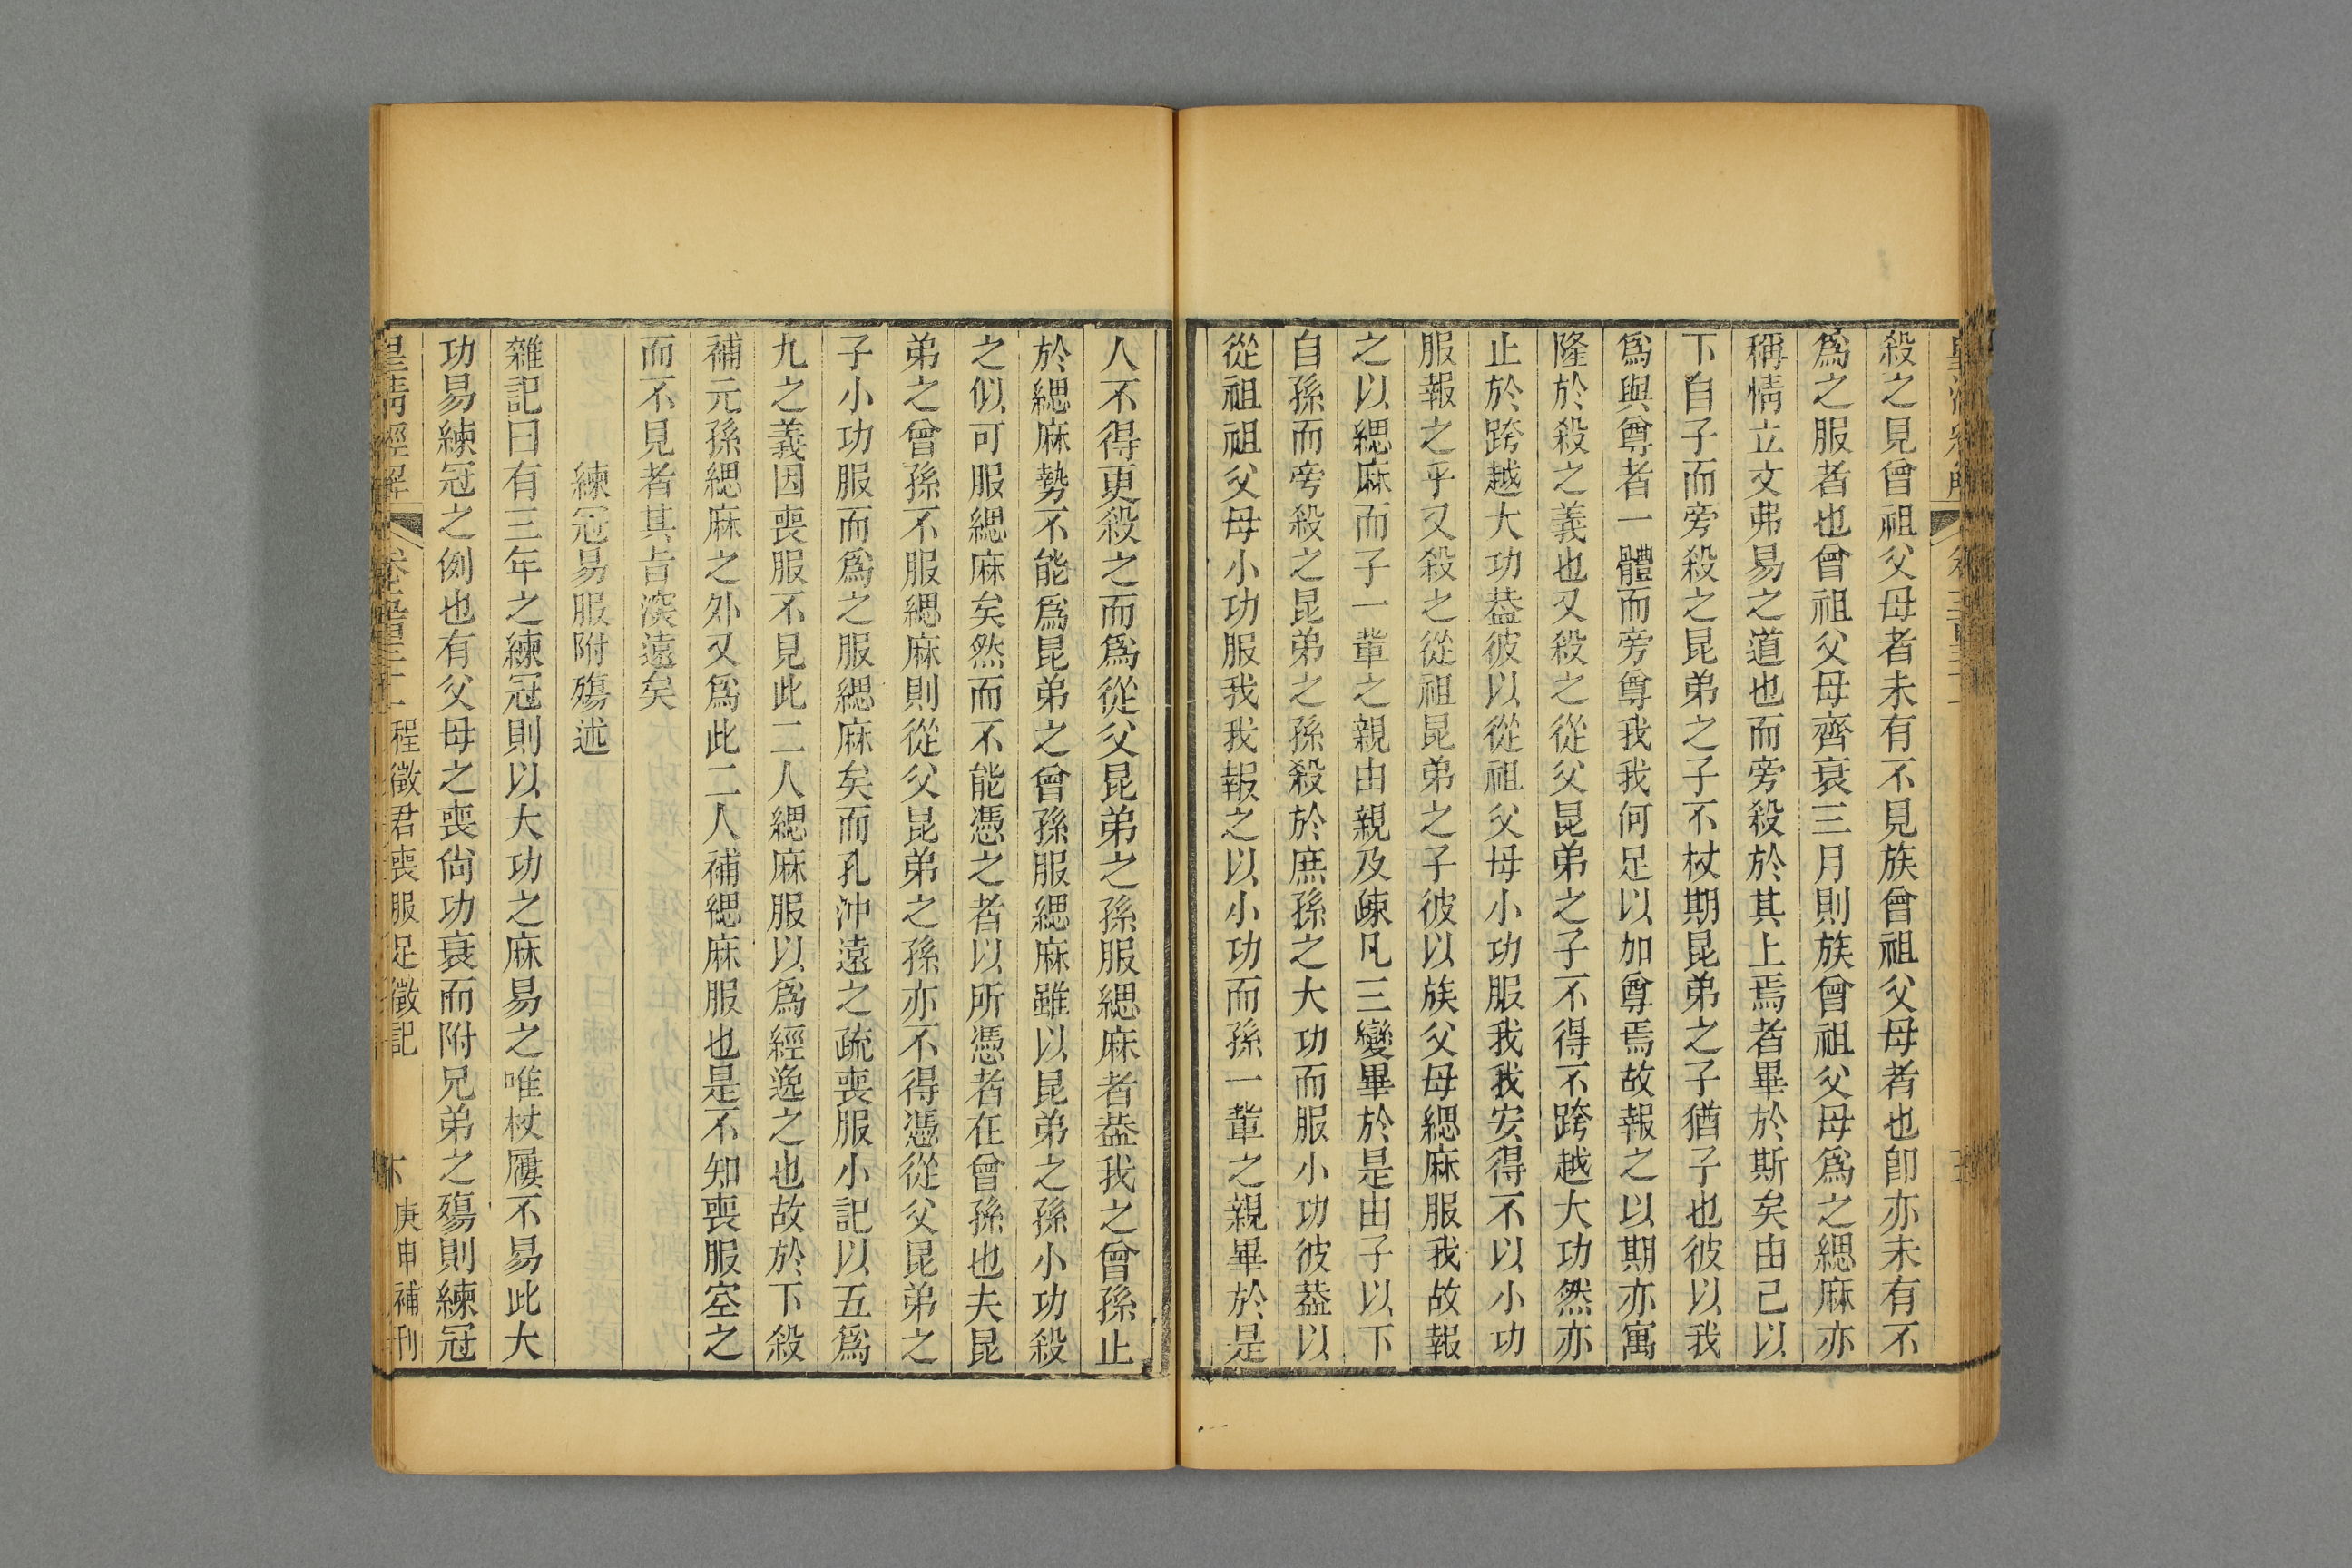 殺之見曾祖父母者未有不見族曾祖父母者也卽亦未有不
爲之服者也曾祖父母齊衰三月則族曾祖父母爲之緦麻亦
稱情立文弗易之道也而旁殺於其上焉者畢於斯矣由己以
下自子而旁殺之昆弟之子不杖期昆弟之子猶子也彼以我
爲與尊者一體而旁尊我我何足以加尊焉故報之以期亦寓
隆於殺之義也又殺之從父昆弟之子不得不跨越大功然亦
止於跨越大功葢彼以從祖父母小功服我我安得不以小功
服報之乎又殺之從祖昆弟之子彼以族父母緦麻服我故報
之以緦麻而子一輩之親由親及疎凡三變畢於是由子以下
自孫而旁殺之昆弟之孫殺於庶孫之大功而服小功彼葢以
從祖祖父母小功服我我報之以小功而孫一輩之親畢於是
人不得更殺之而爲從父昆弟之孫服緦麻者葢我之曾孫止
於緦麻勢不能爲昆弟之曾孫服緦麻雖以昆弟之孫小功殺
之似可服緦麻矣然而不能憑之者以所憑者在曾孫也夫昆
弟之曾孫不服緦麻則從父昆弟之孫亦不得憑從父昆弟之
子小功服而爲之服緦麻矣而孔沖遠之疏喪服小記以五爲
九之義因喪服不見此二人緦麻服以爲經逸之也故於下殺
補元孫緦麻之外又爲此二人補緦麻服也是不知喪服空之
而不見者其旨深遠矣
練冠易服附殤述
雜記曰有三年之練冠則以大功之麻易之唯杖屨不易此大
功易練冠之例也有父母之喪尙功衰而附兄弟之殤則練冠
皇清經解
程徵君喪服足徵記
庚申補刊